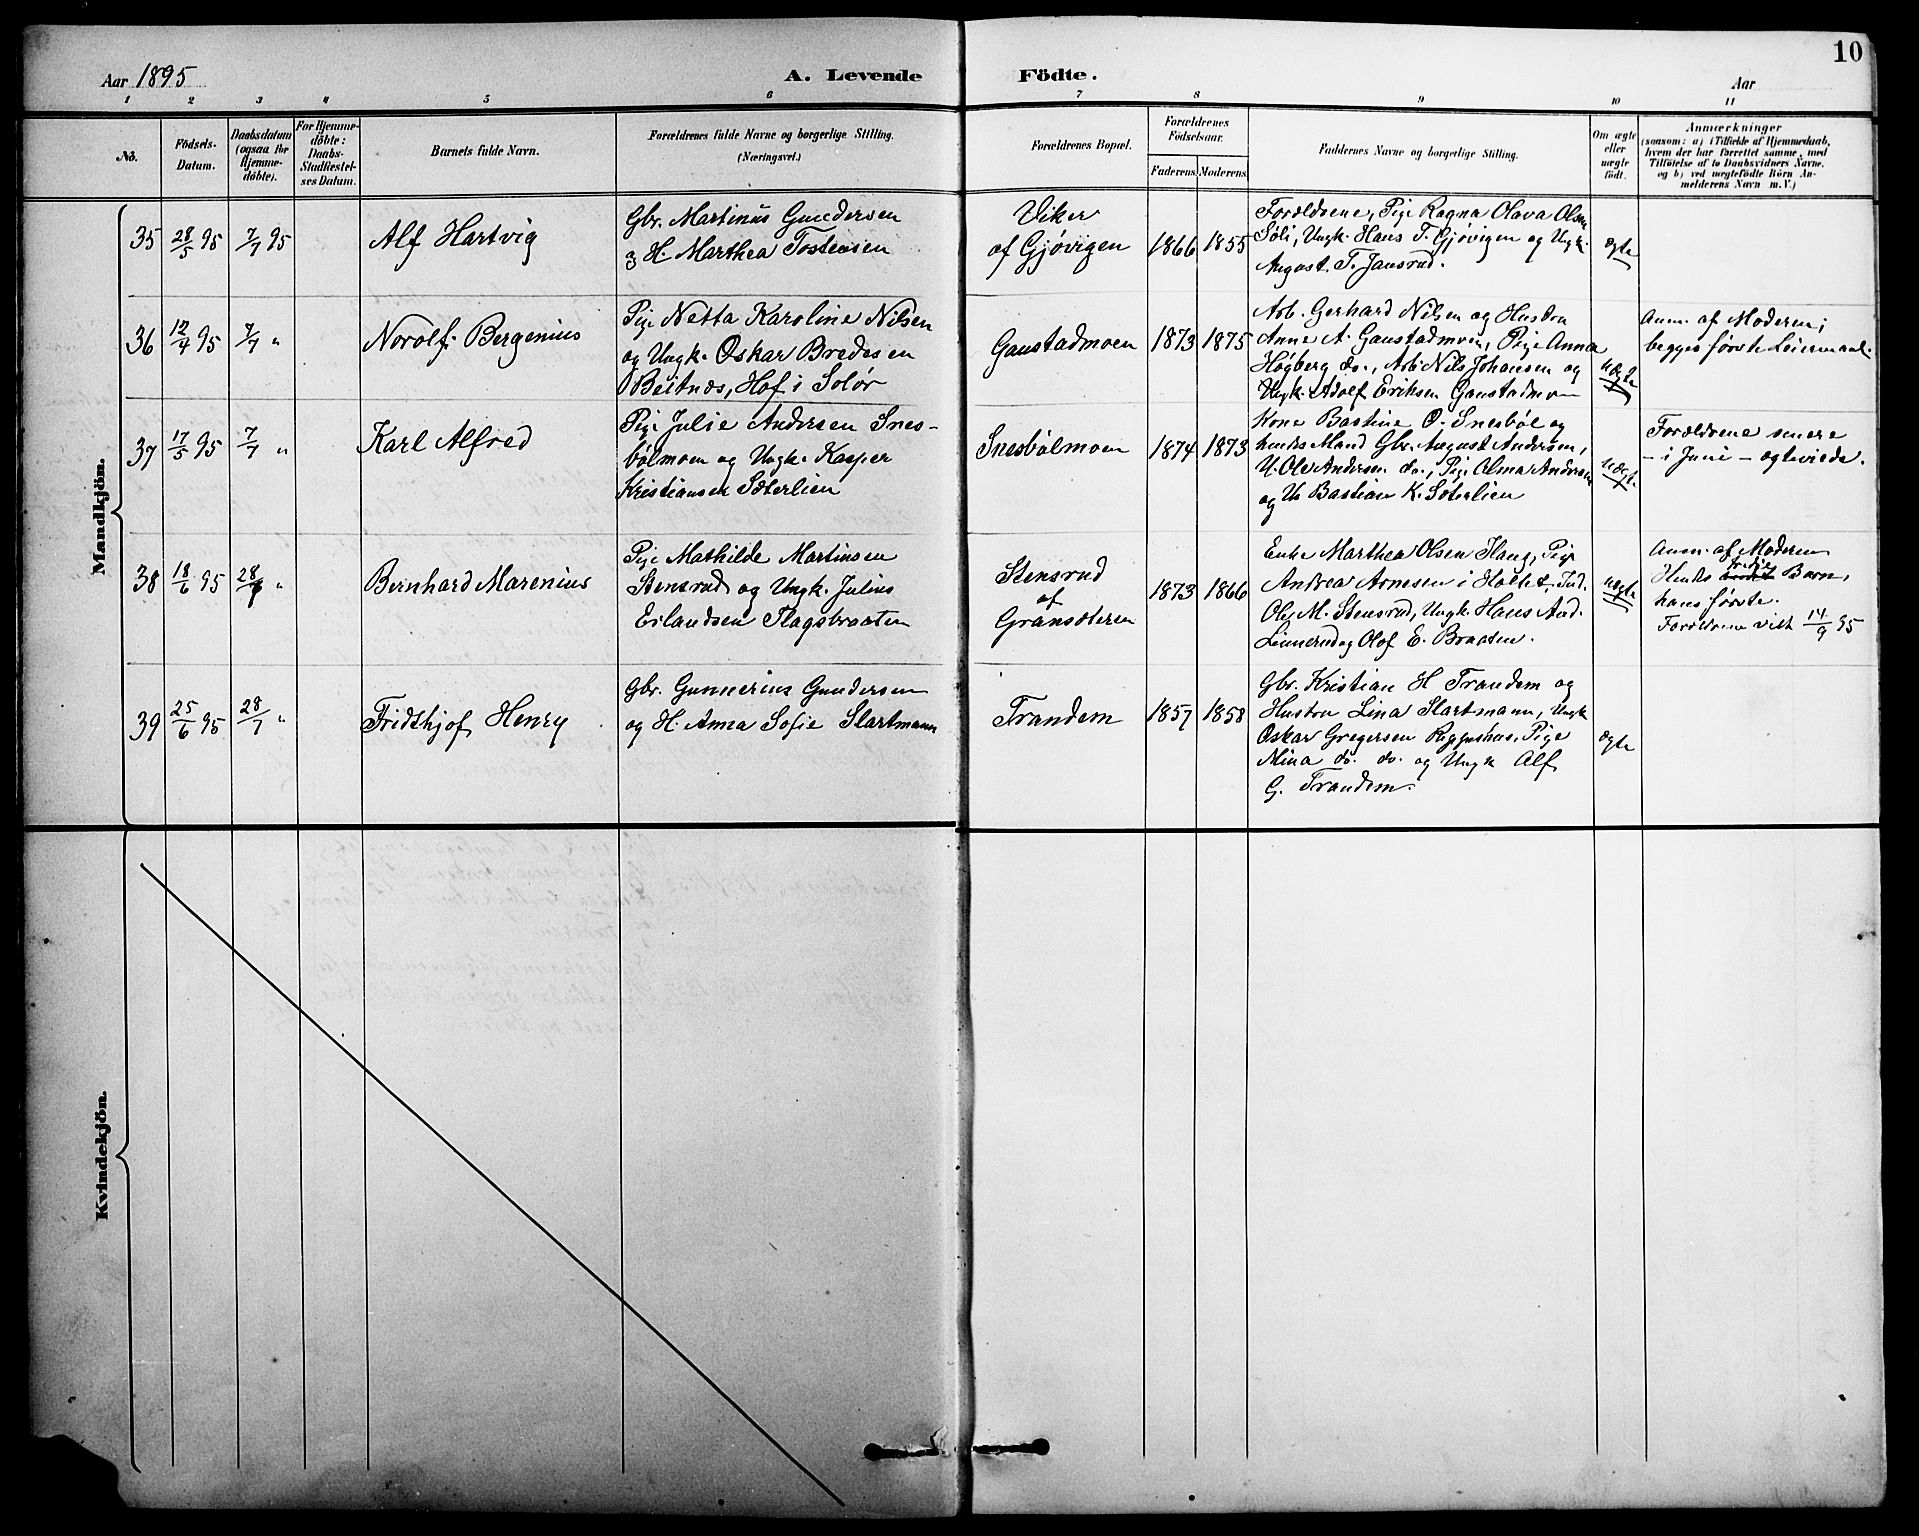 10
Aar 1895
A. Levende Födte.
Aar
1 2 3 4 5 6 7 8 9 10 11
No.
Födsels-
Datum.
Daabsdatum
(ogsaa for
Hjemme-
döbte).
For Hjemme-
döbte:
Daabs-
Stadfæstel-
ses Datum.
Barnets fulde Navn.
Forældrenes fulde Navne og borgerlige Stilling.
(Næringsvei.)
Forældrenes Bopæl.
Forældrenes
Födselsaar.
Faderens Moderens
Faddernes Navne og borgerlige Stilling.
Om ægte
eller
uægte
födt.
Anmærkninger
(saasom: a) i Tilfælde af Hjemmedaab,
hvem der har forrettet samme, med
Tilföielse af to Daabsvidners Navne,
og b) ved uægtefödte Börn An-
melderens Navn m. V.)
Mandkjön.
35 28/5 95 7/7 95
Alf Hartvig
Gbr. Martinus Gundersen
og H. Marthea Tostensen
Viker
af Gjøvigen
1866 1855
Forældrene, Pige Ragna Olava Olsen
Søli, Ungk. Hans T. Gjøvigen og Ungk.
August T. Jansrud.
ægte
36 12/4 95 7/7 "
Norolf Bergenius
Pige Netta Karoline Nilsen
og Ungk. Oskar Bredesen
Beitnæs, Hof i Solør
Gaustadmoen
1873 1875
Arb. Gerhard Nilsen og Hustru
Anne A. Gaustadmoen, Pige Anna
Høgberg do., Arb. Nils Johansen og
Ungk. Adolf Eriksen Gaustadmoen
uægte
Anm. af Moderen;
begges første Leiermaal.
37 17/5 95 7/7 "
Karl Alfred
Pige Julie Andersen Snes-
bølmoen og Ungk. Kasper
Kristiansen Sæterlien
Snesbølmoen
1874 1873
Kone Bastine O. Snesbøl og
hendes Mand Gbr. August Andersen,
U. Ole Andersen do., Pige Alma Andersen
og U. Bastian K. Sæterlien
uægte
Forældrene senere
– i Juni – ægteviede.
38 18/6 95 28/7 "
Bernhard Marenius
Pige Mathilde Martinsen
Stensrud og Ungk. Julius
Erlandsen Flagsbraaten
Stensrud
af
Gransæteren
1873 1866
Enke Marthea Olsen Haug, Pige
Andrea Arnesen i Holtet, Ind.
Ole M. Stensrud, Ungk. Hans And.
Linnerud og Olof E. Braaten.
uægte
Anm. af Moderen
Hendes tredje Barn,
hans første.
Forældrene viet 14/9 95
39 25/6 95 28/7 "
Fridthjof Henry
Gbr. Gunnerius Gundersen
og H. Anna Sofie Slartmann
Trandem
1857 1858
Gbr. Kristian H Trandem og
Hustru Lina Slartmann, Ungk
Oskar Gregersen Pige
Mina do. do. og Ungk Alf
G. Trandem.
ægte
Kvindekjön.